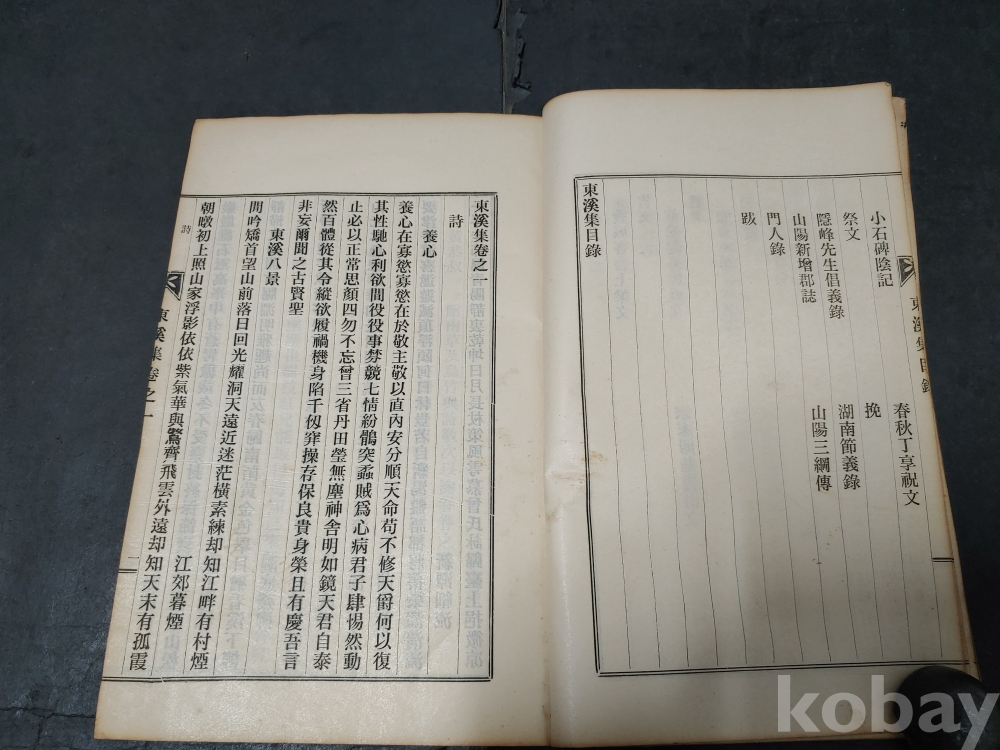 東溪集目錄
小石碑陰記 春秋丁享祝文
祭文 挽
隱峰先生倡義錄 湖南節義錄
山陽新增郡誌 山陽三綱傳
門人錄
跋
東溪集目錄
東溪集卷之一
詩
養心
養心在寡慾寡慾在於敬主敬以直內安分順天命苟不修天爵何以復
其性馳心利欲間役役事棼競七情紛鶻突蟊賊爲心病君子肆惕然動
止必以正常思顏四勿不忘曾三省丹田瑩無塵神舍明如鏡天君自泰
然百體從其令縱欲履禍機身陷千仭穽操存保良貴身榮且有慶吾言
非妄爾聞之古賢聖
東溪八景
間吟矯首望山前落日回光耀洞天遠近迷茫橫素練却知江畔有村煙
江郊暮煙
朝暾初上照山家浮影依依紫氣華與鶩齊飛雲外遠却知天末有孤霞
東溪集卷之一
詩
一
kobay